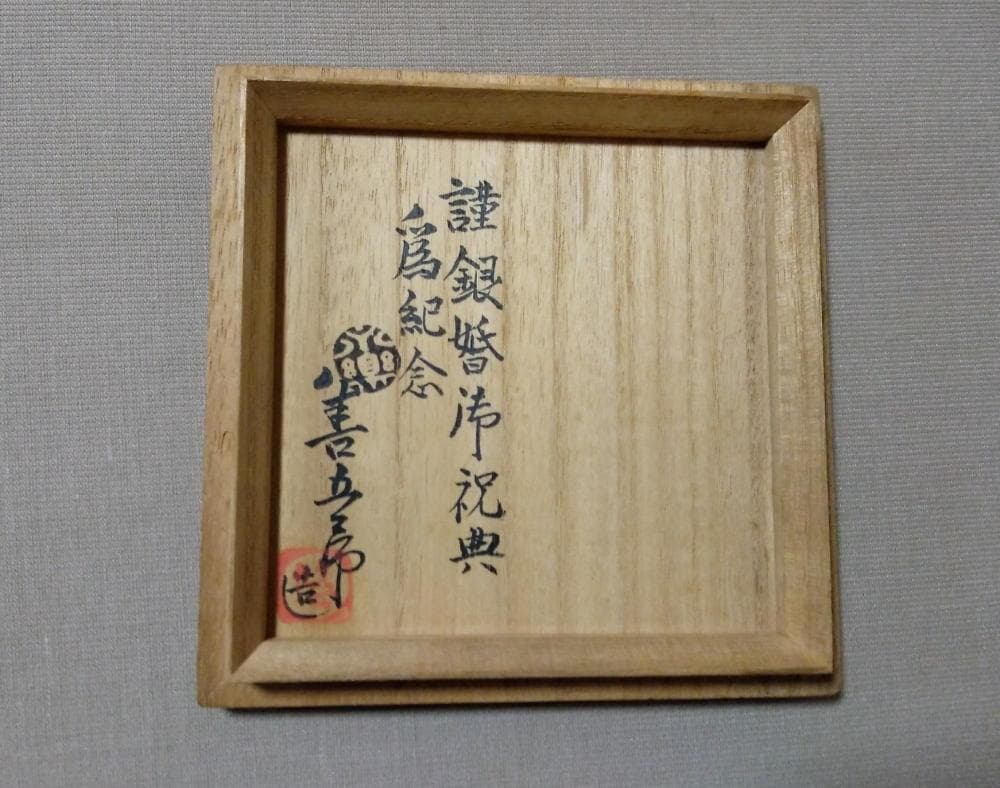 謹銀婚御祝典
為紀念
善五郎
造